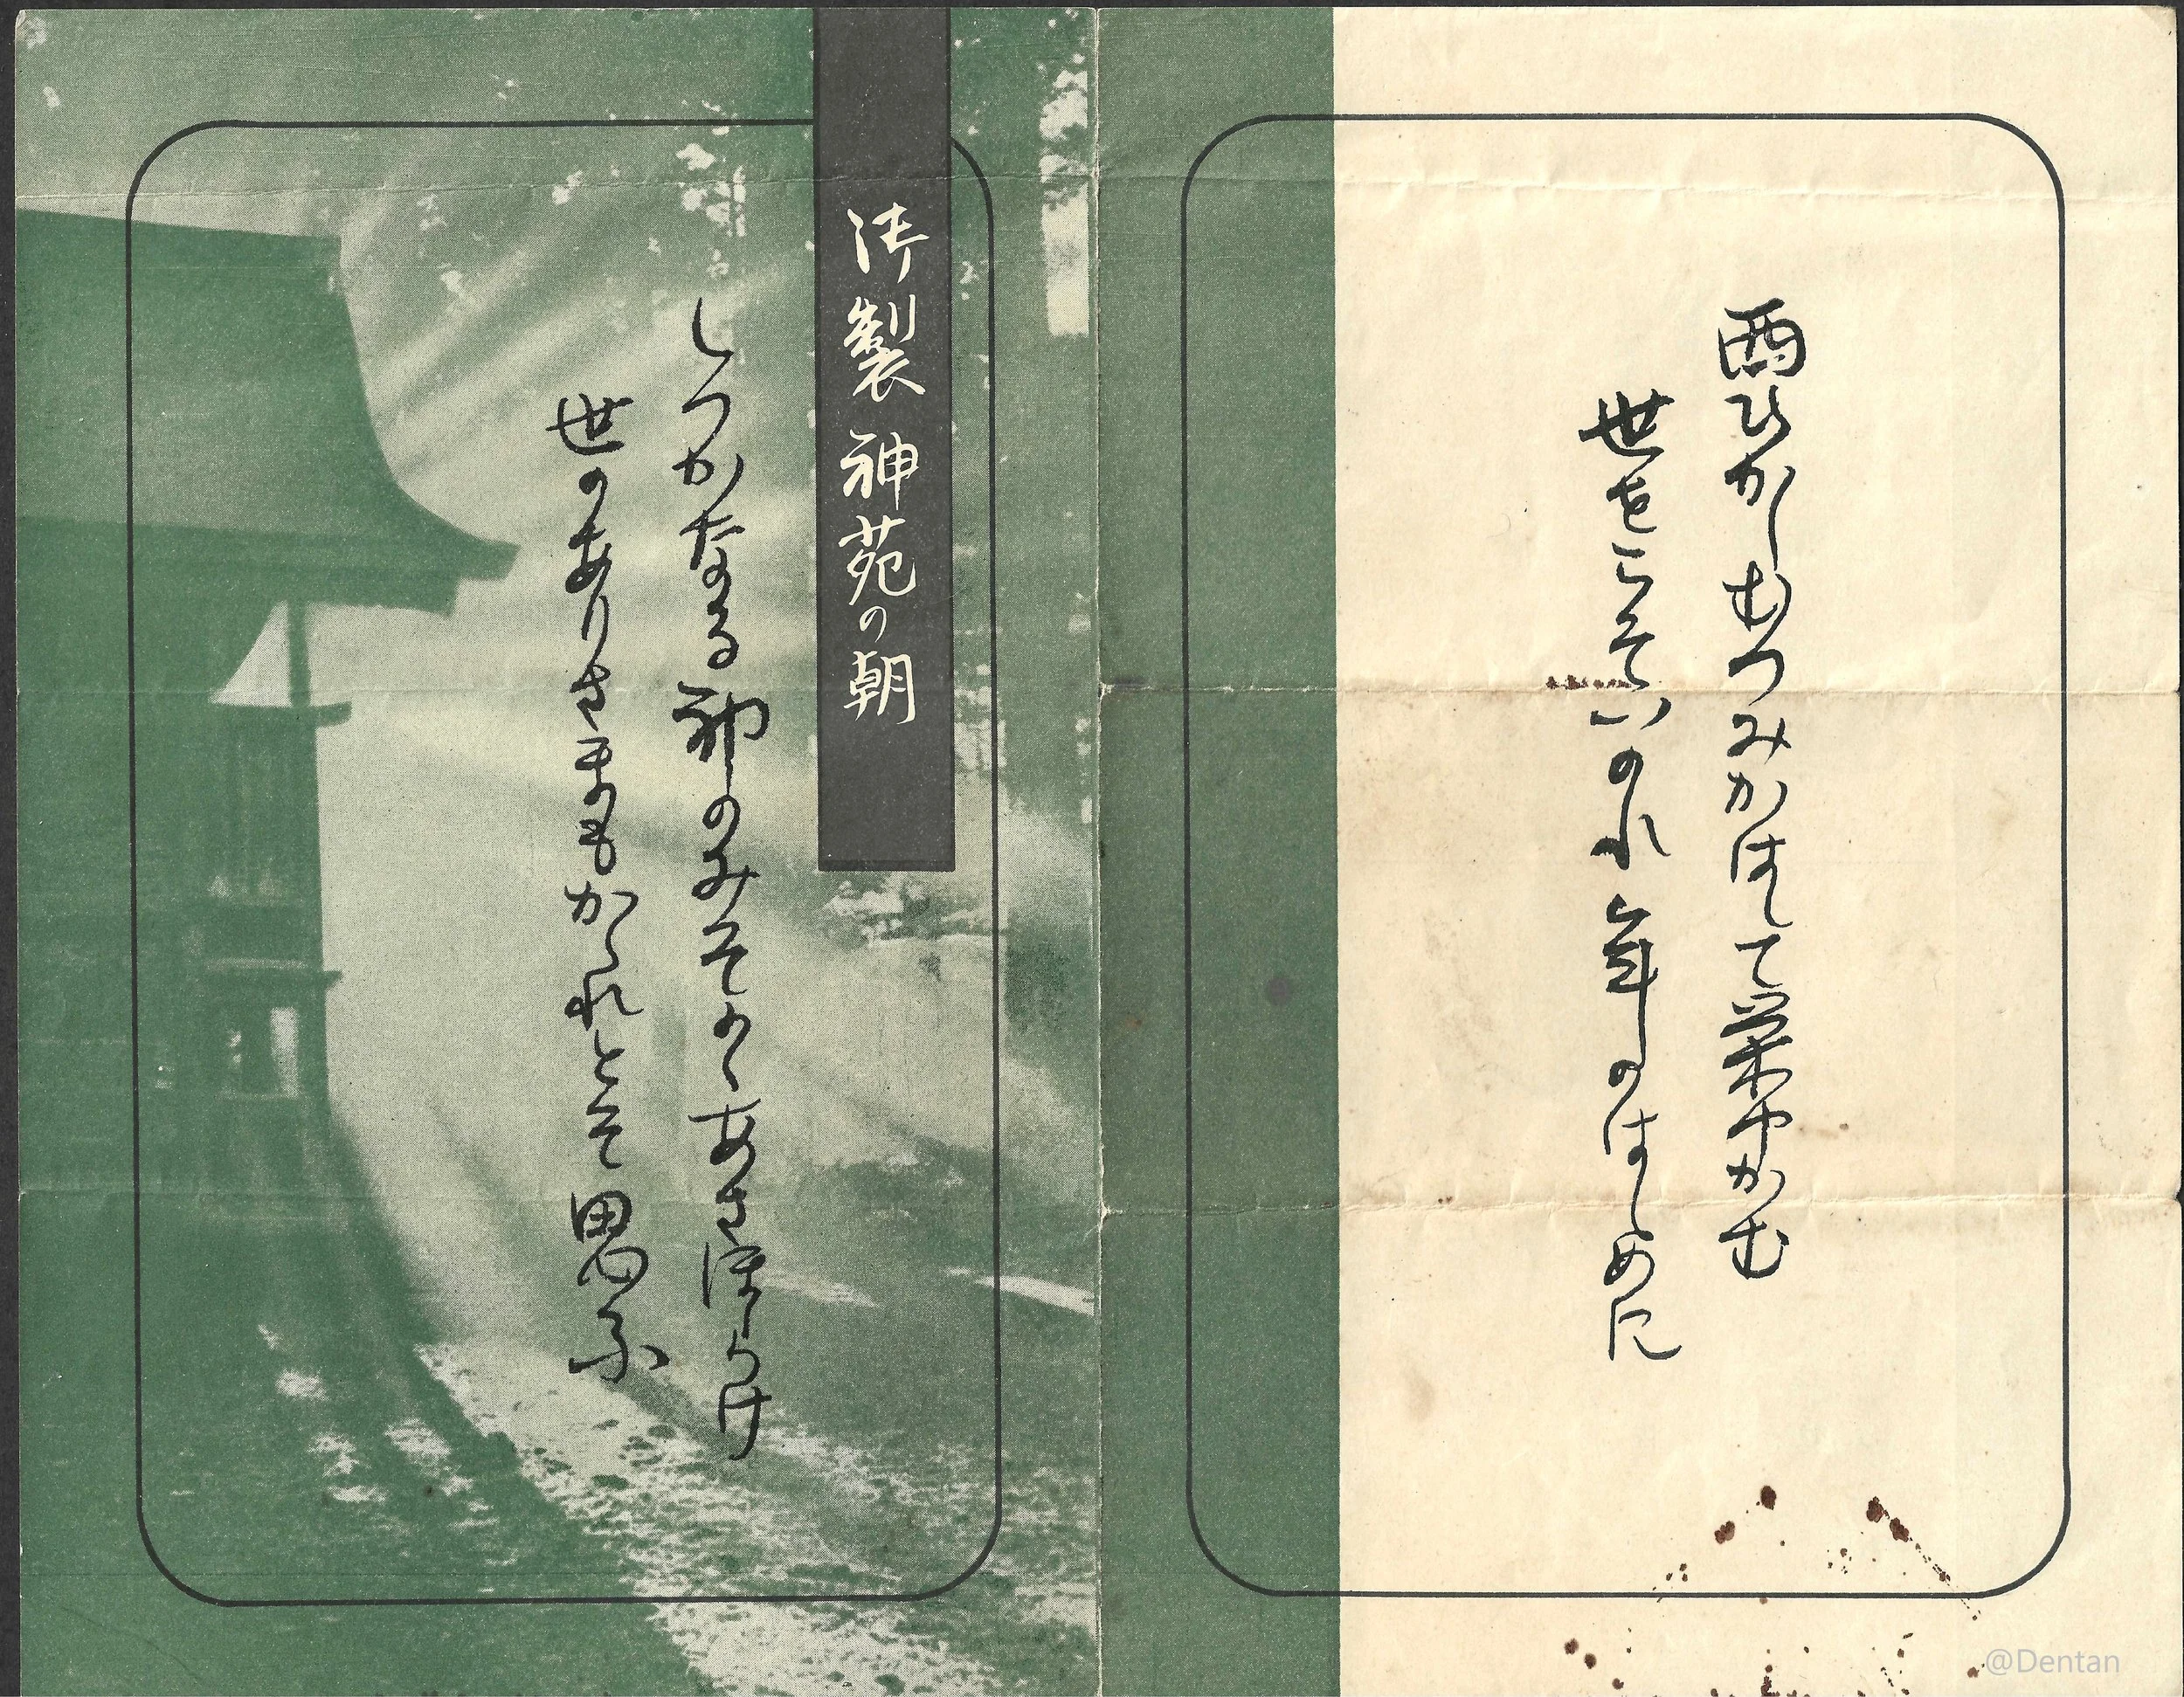 西ひかしむつみかはして栄ゆかむ
世をこそいのれ年のはしめに
御製 神苑の朝
しつかなる神のみそのゝあさほらけ
世のありさまもかゝれとそ思ふ
@Dentan